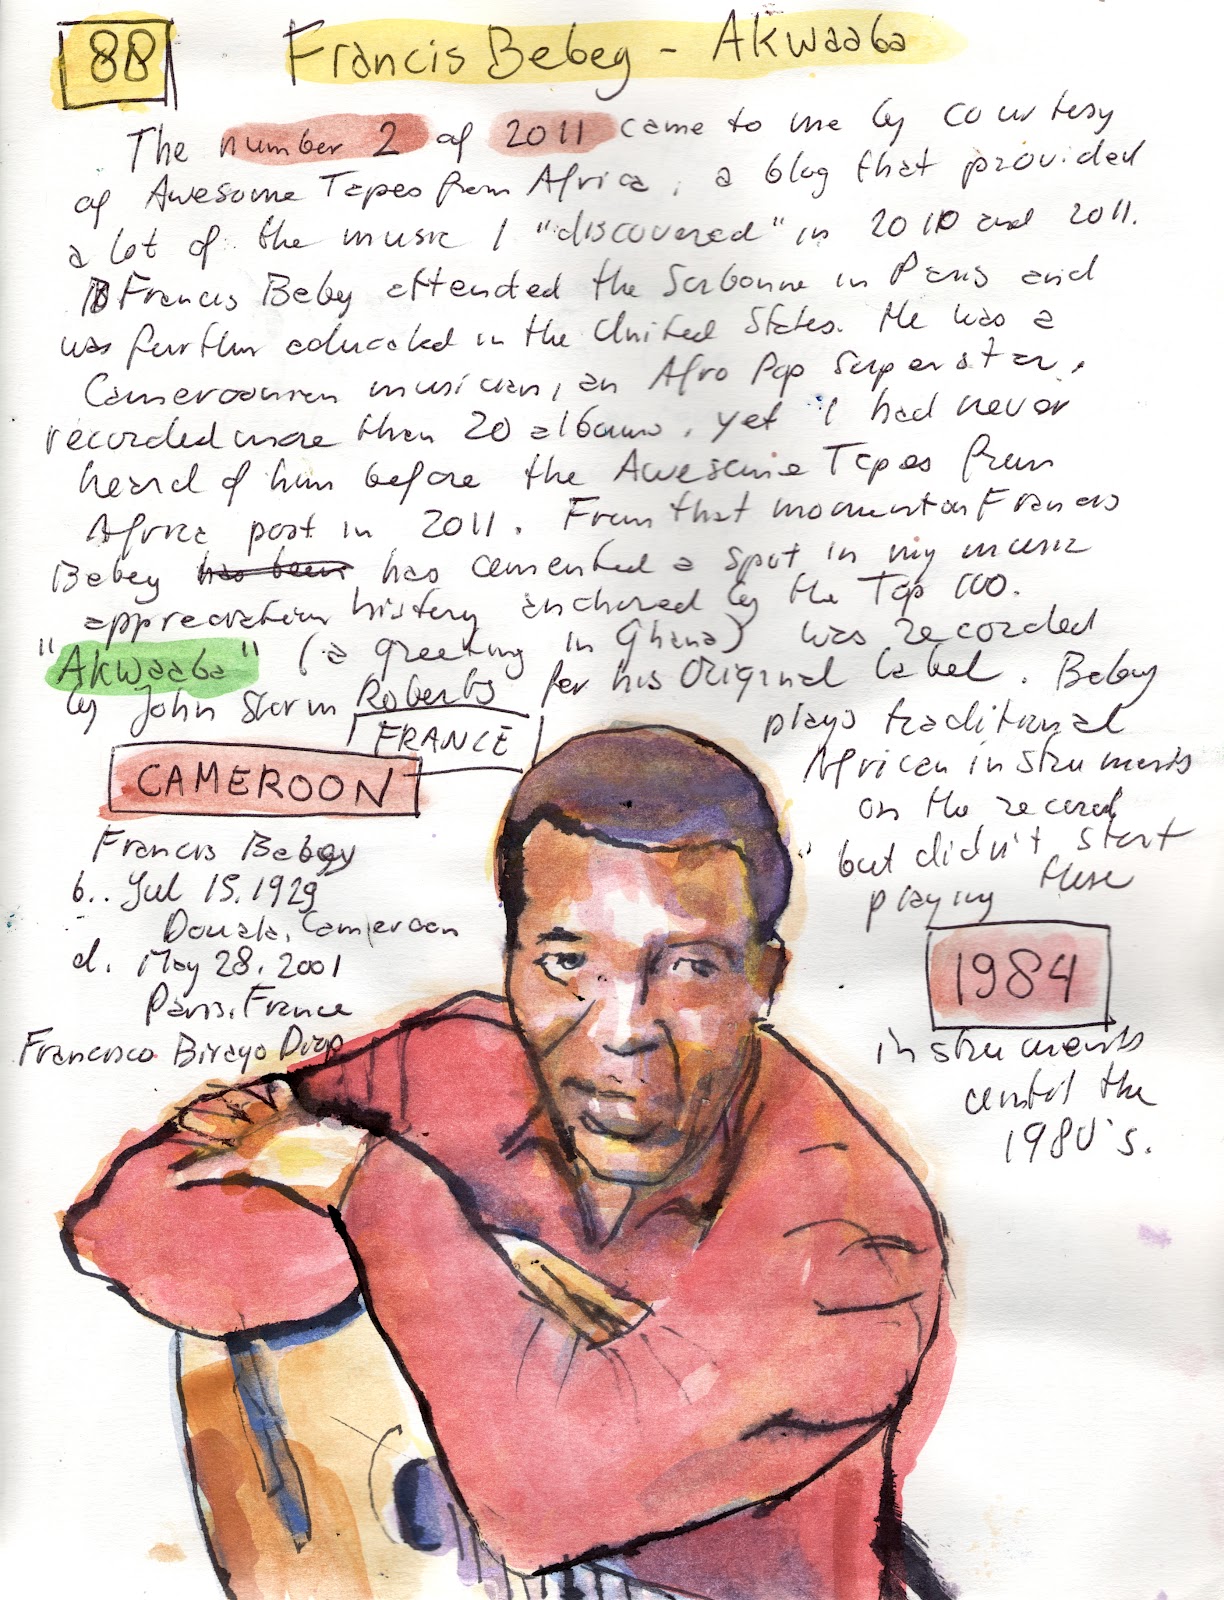 88
Francis Bebey - Akwaaba
The number 2 of 2011 came to me by courtesy
of Awesome Tapes from Africa, a blog that provided
a lot of the music I "discovered" in 2010 and 2011.
Francis Beby attended the Sorbonne in Paris and
was further educated in the United States. He was a
Cameroonian musician, an Afro Pop Superstar,
recorded more than 20 albums, yet I had never
heard of him before the Awesome Tapes from
Africa post in 2011. From that moment on Francis
Bebey has been has cemented a spot in my music
appreciation history anchored by the Top 100.
"Akwaaba" (a greeting in Ghana) was recorded
by John Storm Roberts for his Original label. Bebey
plays traditional
African instruments
on the record
but didn't start
playing these
FRANCE
CAMEROON
Francis Bebey
b.. Jul 15, 1929
Douala, Cameroon
d. May 28, 2001
Paris, France
1984
instruments
until the
1980's.